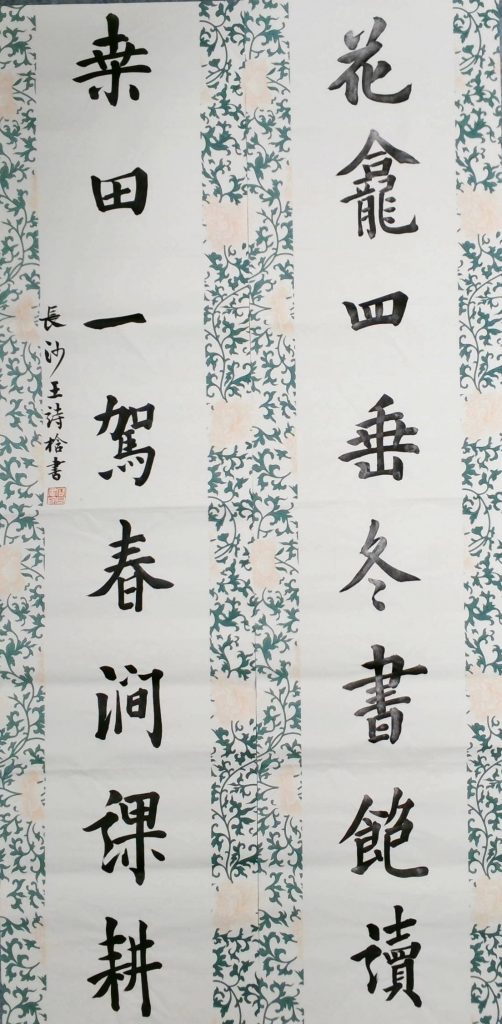 花龕四垂冬書飽讀
桒田一駕春澗課耕
長沙王詩書